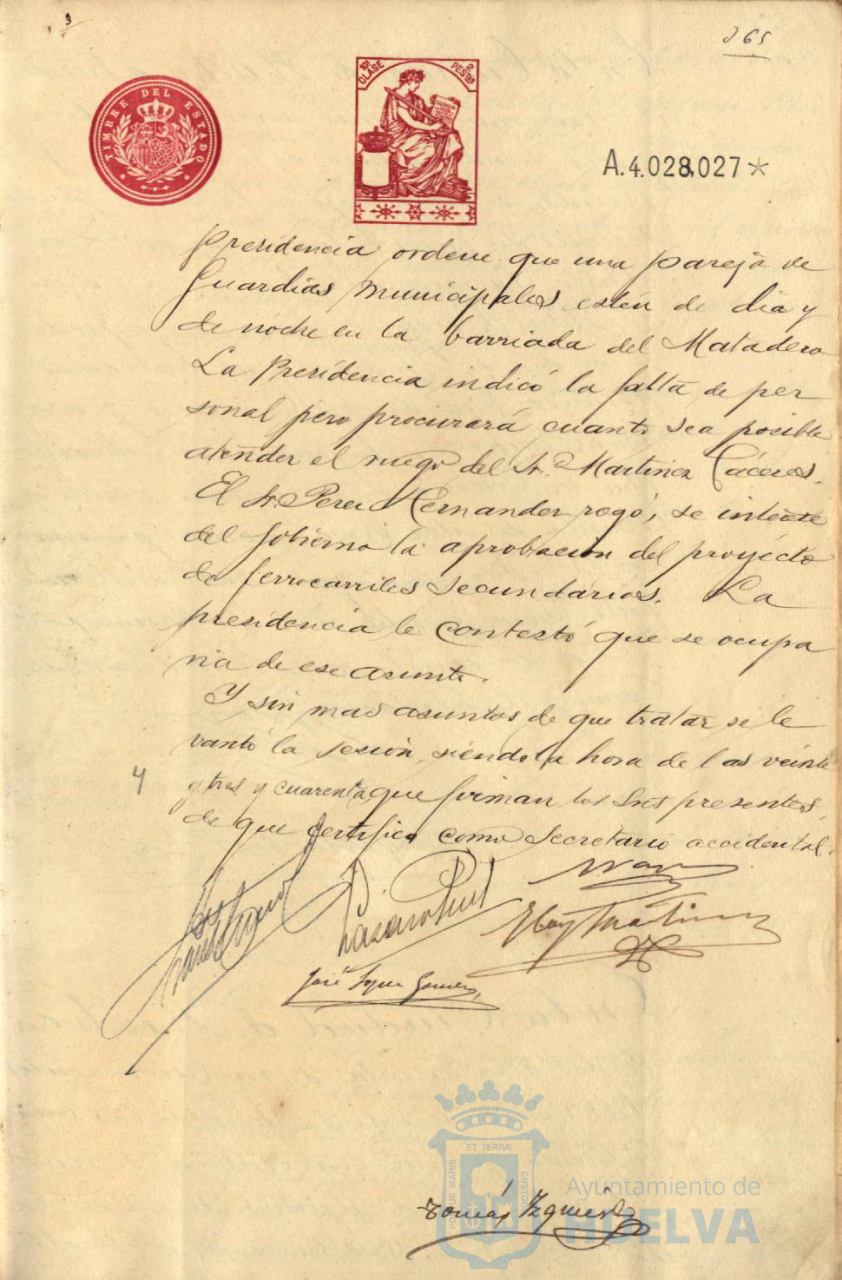 3
265
TIMBRE DEL ESTADO
10ª CLASE
2 PESTAS
A.4.028,027*
Presidencia ordene que una pareja de
Guardias municipales estén de dia y
de noche en la barriada del Matadero
La Presidencia indicó la falta de per
sonal pero procurará cuanto sea posible
atender el ruego del Sr. Martinez Cáceres.
El Sr. Perez Hernandez rogó, se interese
del Gobierno la aprobacion del proyecto
de ferrocarriles secundarios. La
presidencia le contestó que se ocupa
ria de ese asunto.
Y sin mas asuntos de que tratar se le
vantó la sesión, siendo la hora de las veinte
y tres y cuarenta que firman los Sres presentes,
de que certifico como Secretario accidental.
4
Eloy Martinez
José
Tomás Izquierdo
ET TERRÆ
PORTUS MARIS
CUSTODIA
Ayuntamiento de
HUELVA